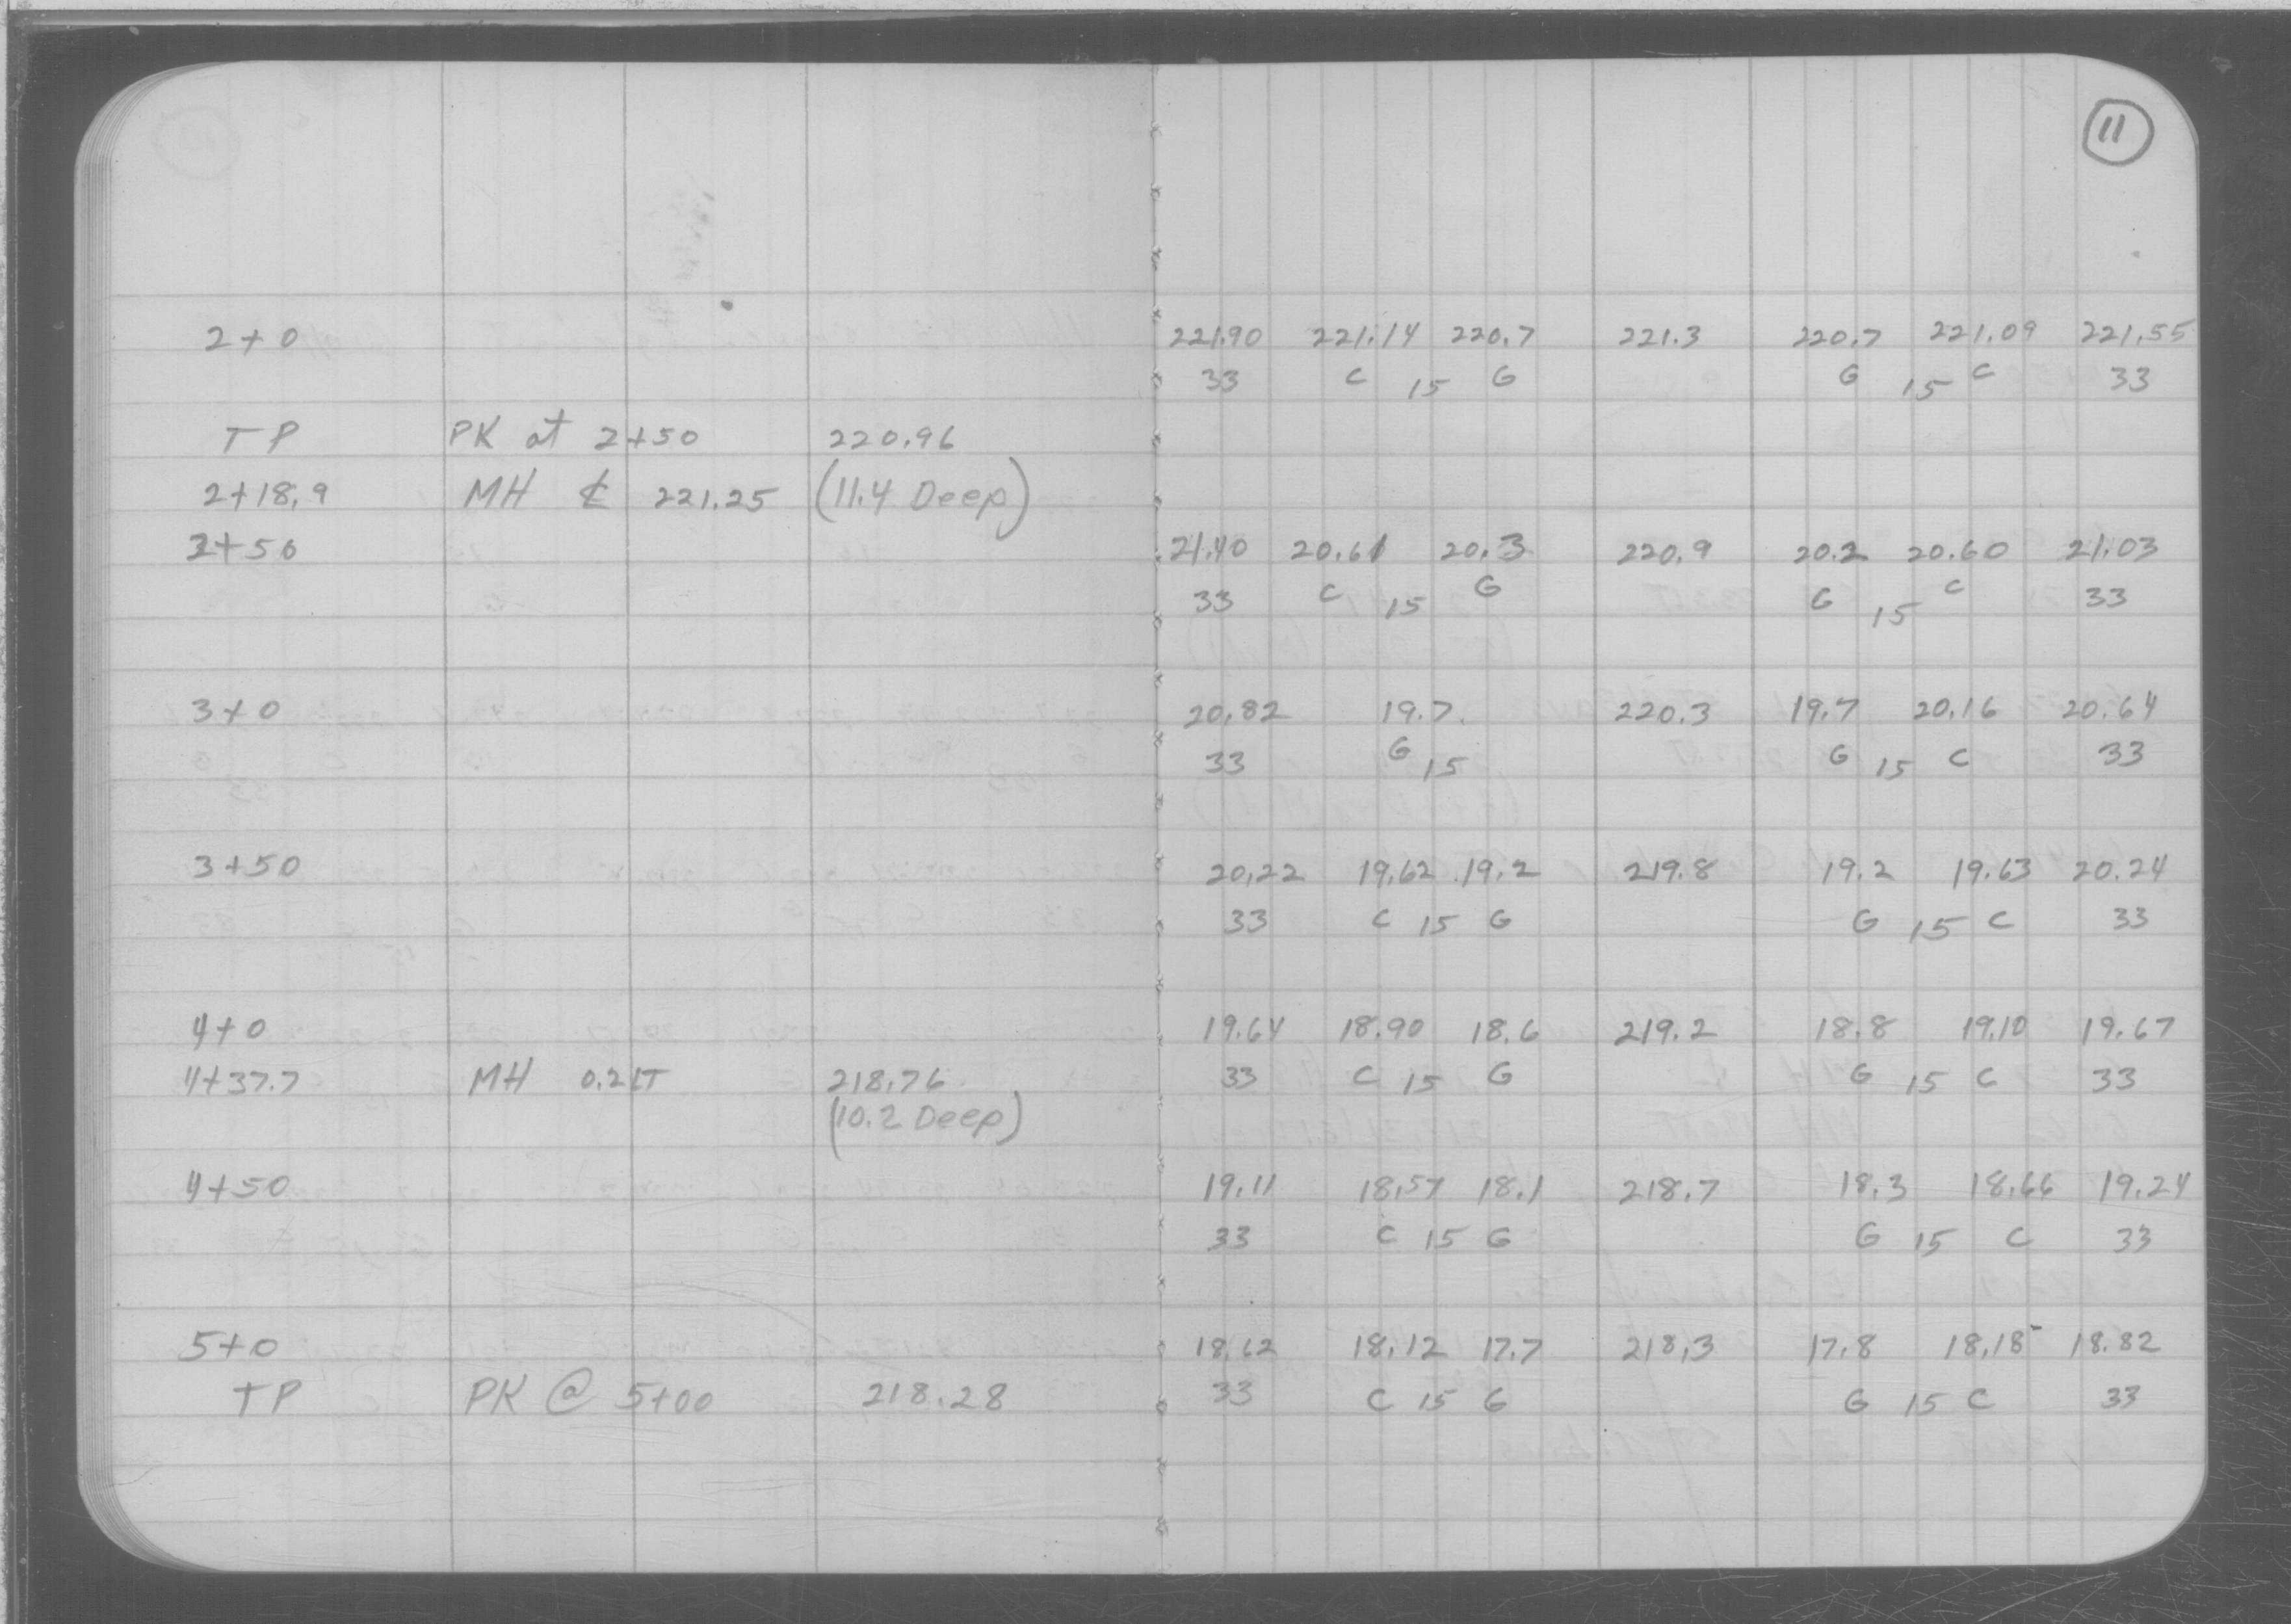 11
2+0 221.90 221.14 220.7 221.3 220.7 221.09 221.55
33 C 15 G G 15 C 33
TP PK at 2+50 220.96
2+18.9 MH ℄ 221.25 (11.4 Deep)
2+50 21.40 20.61 20.3 220.9 20.2 20.60 21.03
33 C 15 G G 15 C 33
3+0 20.82 19.7 220.3 19.7 20.16 20.64
33 G 15 G 15 C 33
3+50 20.22 19.62 19.2 219.8 19.2 19.63 20.24
33 C 15 G G 15 C 33
4+0 19.64 18.90 18.6 219.2 18.8 19.10 19.67
4+37.7 MH 0.2 LT 218.76 33 C 15 G G 15 C 33
(10.2 Deep)
4+50 19.11 18.57 18.1 218.7 18.3 18.66 19.24
33 C 15 G G 15 C 33
5+0 18.62 18.12 17.7 218.3 17.8 18.18 18.82
TP PK @ 5+00 218.28 33 C 15 G G 15 C 33